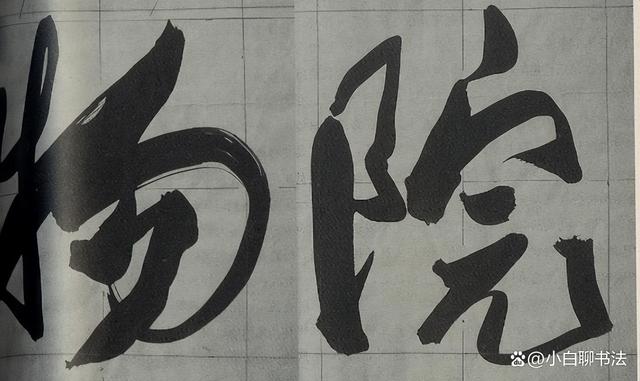 物院
@小白聊书法